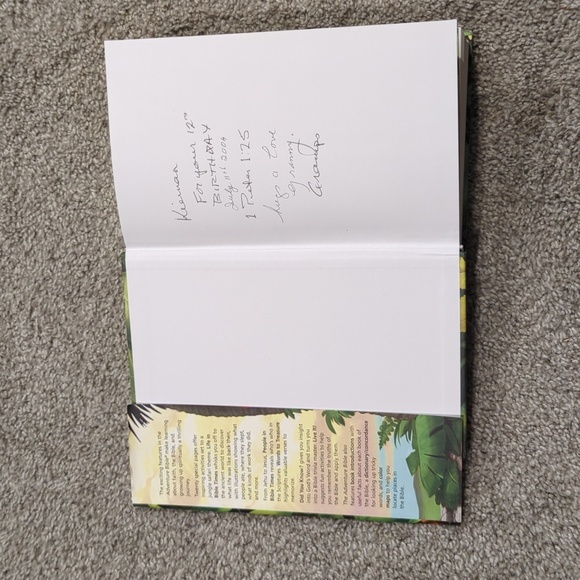 The exciting features in the
Adventure Bible make learning
about faith, the Bible, and
growing spiritually a thrilling
journey.
Twenty special pages offer
inspiring Bible verses set to a
jungle safari theme. Life in
Bible Times whisks you off to
the ancient world to discover
what life was like back then,
with illustrations showing what
people ate, where they slept,
what kinds of work they did,
and more.
to Jesus, People in
Bible Times reveals who's who in
the Scriptures. Words to Treasure
highlights valuable verses to
memorize.
Did You Know? gives you insight
into God's Word and turns you
into a Bible trivia master. Live It!
suggests fun activities to help
you remember the truths of
the Bible and apply them.
The Adventure Bible also
features book introductions with
useful facts about each book of
the Bible, a dictionary/concordance
for looking up tricky
words, and color
maps to help you
locate places in
the Bible.
Kiernan
For your 12th
BIRTHDAY
July 11th 2004
1 Peter 1:25
hugs & Love
granny.
Grandpa